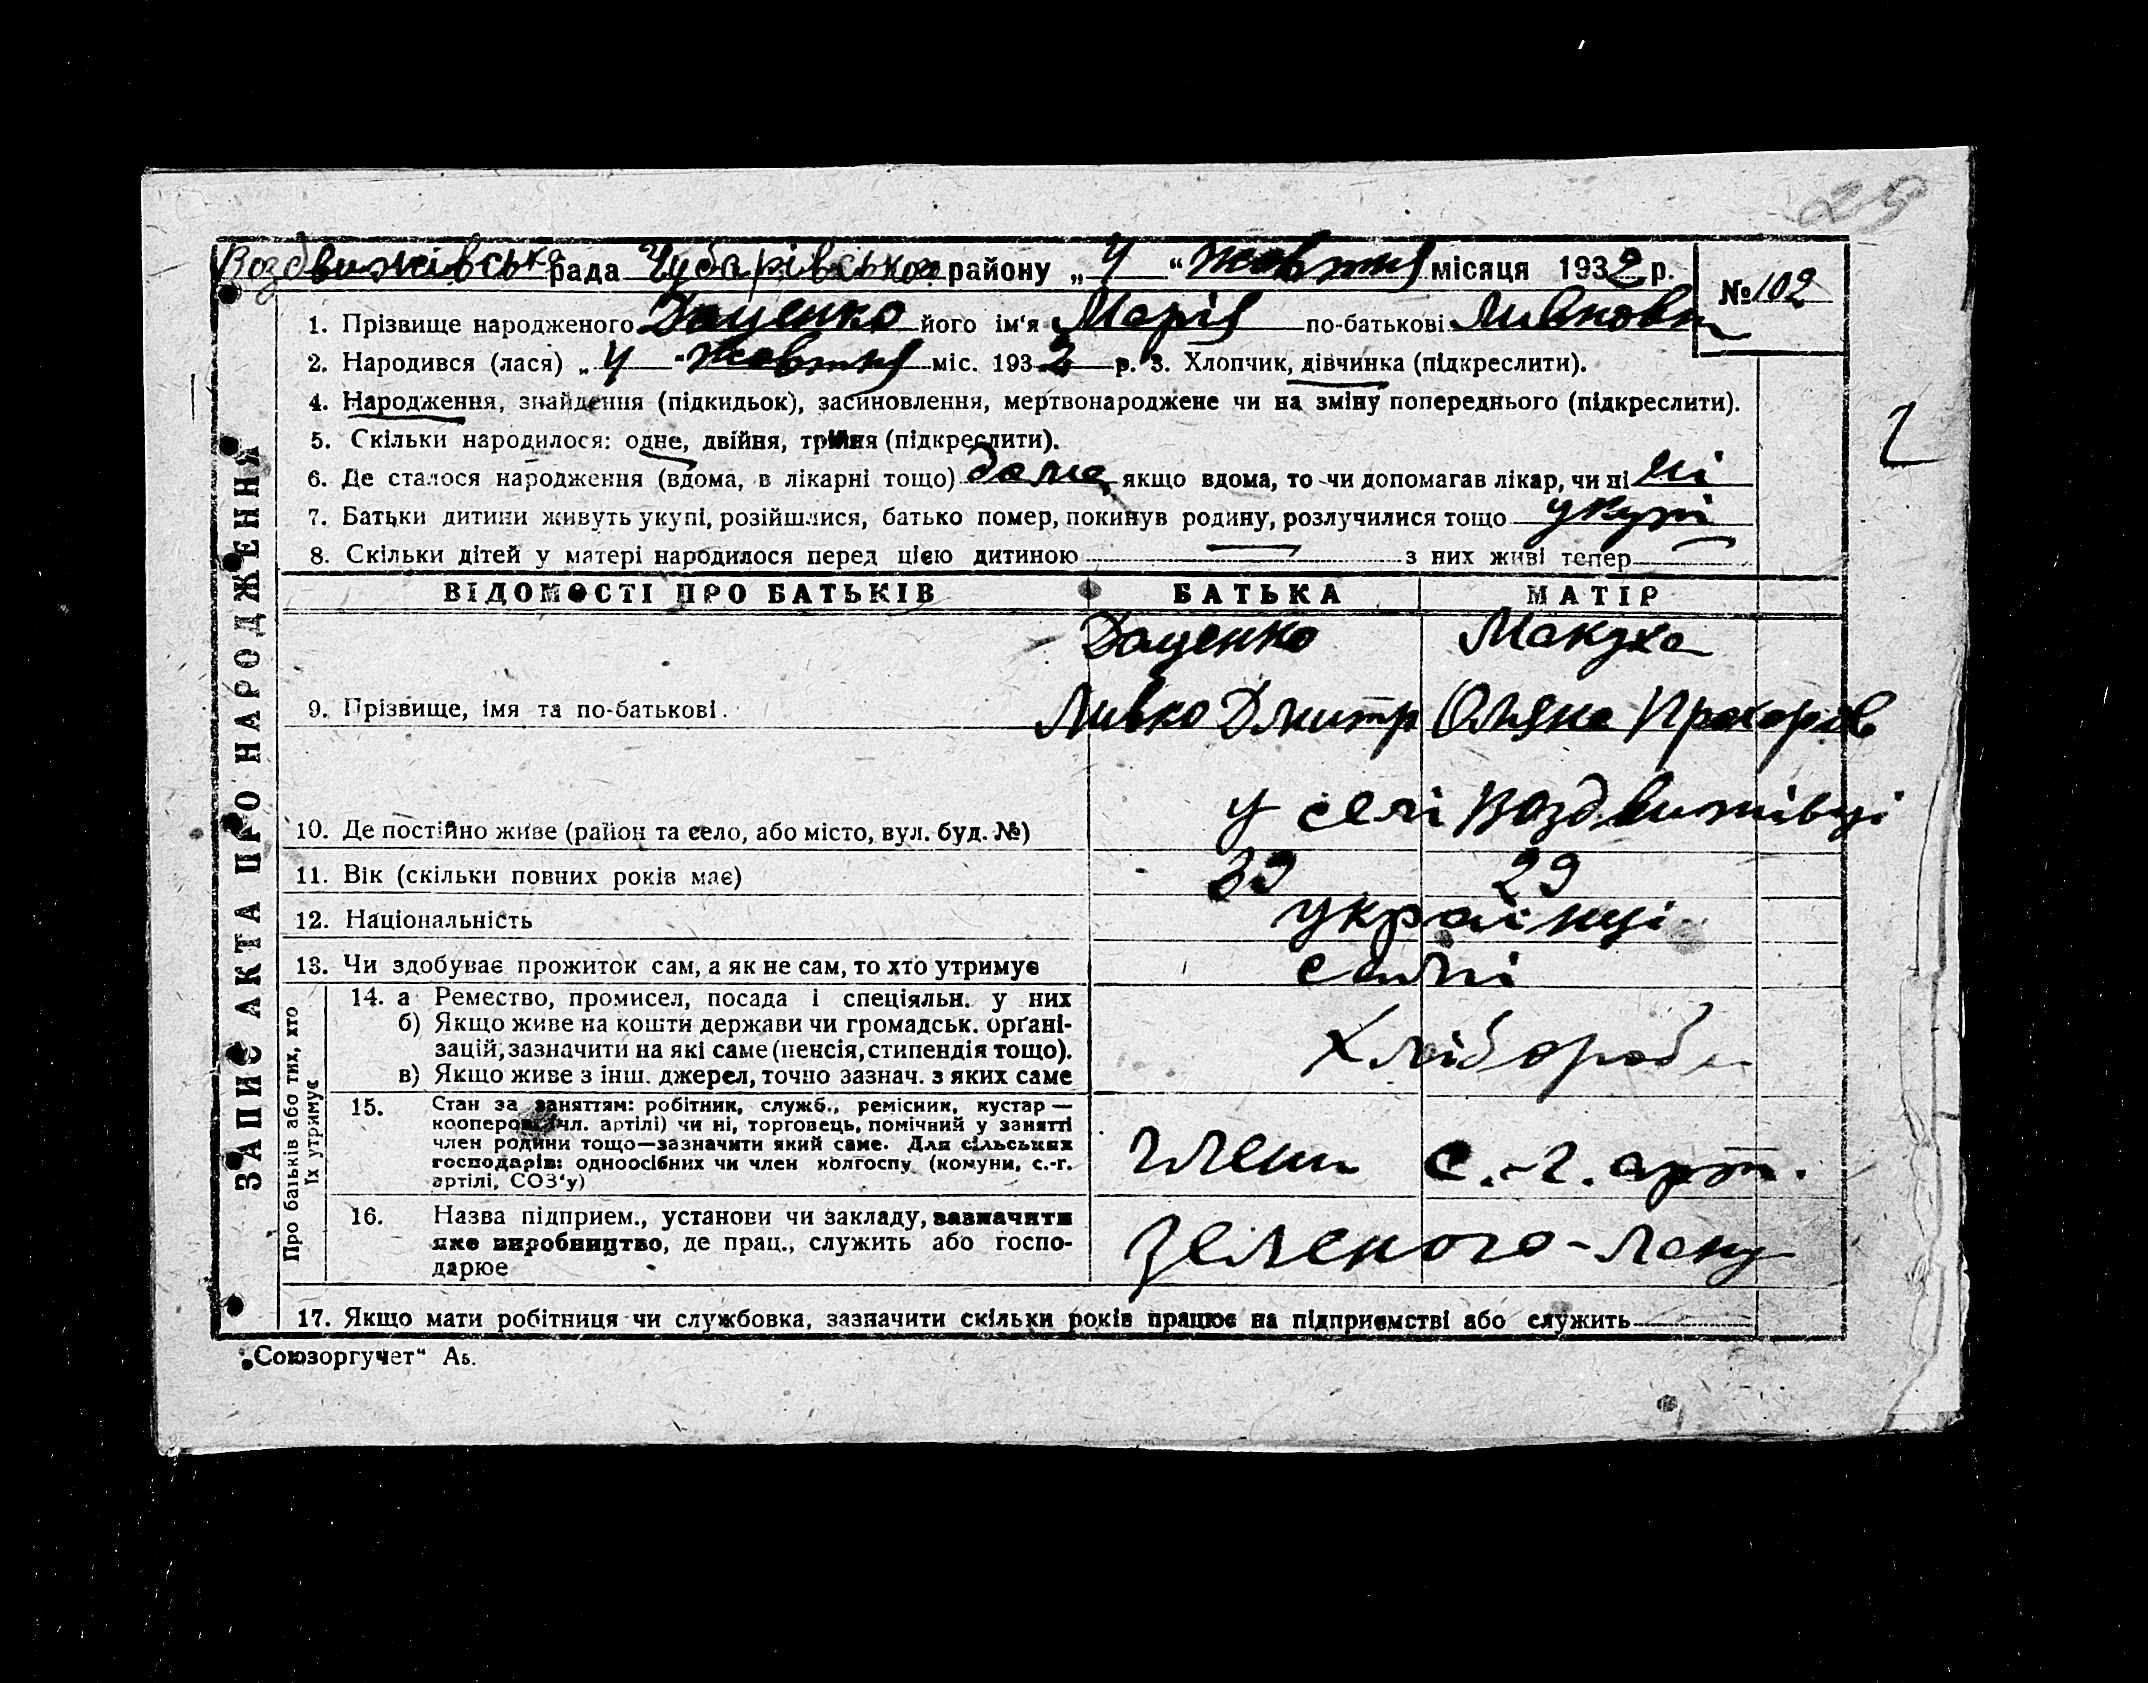 29
Воздвижівська рада Чубарівського району „ 4 “ жовтня місяця 1932 р.
№ 102
1. Прізвище народженого Даценко його ім'я Марія по-батькові Ливковн
2. Народився (лася) „ 4 " жовтня міс. 1932 р. 3. Хлопчик, дівчинка (підкреслити).
4. Народження, знайдення (підкидьок), засиновлення, мертвонароджене чи на зміну попереднього (підкреслити).
5. Скільки народилося: одне, двійня, трійня (підкреслити).
6. Де сталося народження (вдома, в лікарні тощо) дома, якщо вдома, то чи допомагав лікар, чи ні ні
7. Батьки дитини живуть укупі, розійшлися, батько помер, покинув родину, розлучилися тощо укупі
8. Скільки дітей у матері народилося перед цією дитиною — з них живі тепер —
ВІДОМОСТІ ПРО БАТЬКІВ БАТЬКА МАТІР
Даценко Макуха
9. Прізвище, імя та по-батькові. Ливко Дмитр Оляна Прохорів
10. Де постійно живе (район та село, або місто, вул. буд. №) у селі Воздвижівці
11. Вік (скільки повних років має) 39 29
12. Національність українці
13. Чи здобуває прожиток сам, а як не сам, то хто утримує самі
14. а Ремество, промисел, посада і спеціяльн. у них
б) Якщо живе на кошти держави чи громадськ. органі-
зацій, зазначити на які саме (пенсія, стипендія тощо).
в) Якщо живе з інш. джерел, точно зазнач. з яких саме
Хлібороби
15. Стан за заняттям: робітник, служб., ремісник, кустар —
кооперов. (чл. артілі) чи ні, торговець, помічний у занятті
член родини тощо—зазначити який саме. Для сільських
господарів: одноосібних чи член колгоспу (комуни, с.-г.
артілі, СОЗ'у)
члени с.-г. арт.
16. Назва підприєм., установи чи закладу, зазначити
яке виробництво, де прац., служить або госпо-
дарює
Зеленого-Лану
17. Якщо мати робітниця чи службовка, зазначити скільки років працює на підприємстві або служить
ЗАПИС АКТА ПРО НАРОДЖЕННЯ
Про батьків або тих, хто
їх утримує
„Союзоргучет“ Аь.